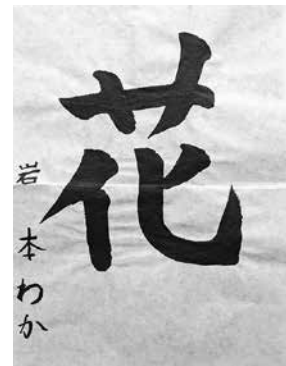 花
岩本わか